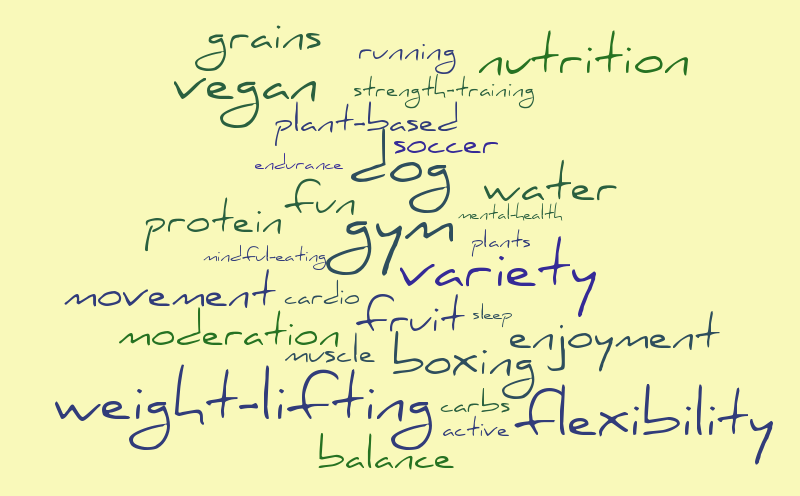 grains
running
nutrition
vegan
strength-training
plant-based
soccer
endurance
dog
water
fun
mental-health
protein
gym
plants
mindful-eating
variety
movement
cardio
fruit
sleep
moderation
enjoyment
muscle
boxing
weight-lifting
carbs
flexibility
active
balance